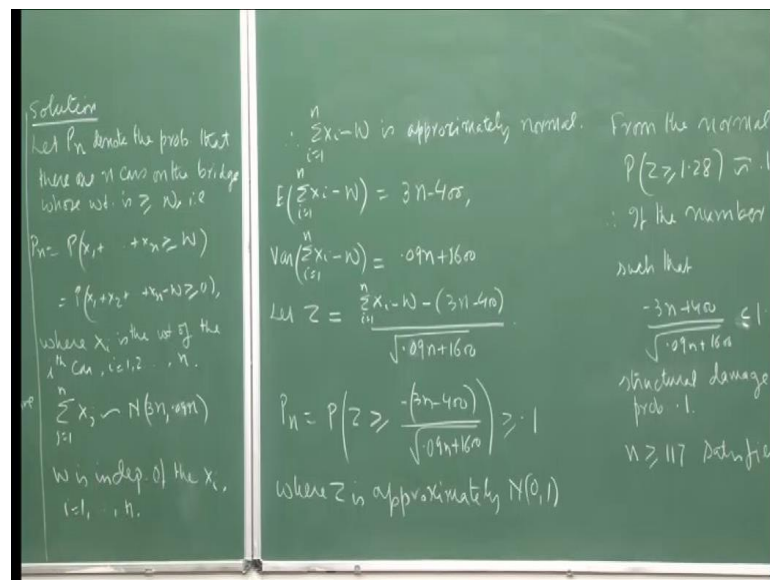 Solution
Let Pn denote the prob. that
there are n cars on the bridge
whose wt. is ≥ W, i.e
Pn = P(x1 + ·· + xn ≥ W)
= P(x1 + x2 + ·· + xn - W ≥ 0),
where xi is the wt of the
ith car, i=1,2 ..., n.
∑_{j=1}^{n} xj ~ N(3n, ·09n)
W is indep. of the xi,
i=1, .., n.
∴ ∑_{i=1}^{n} xi - W is approximately normal.
E(∑_{i=1}^{n} xi - W) = 3n-400,
Var(∑_{i=1}^{n} xi - W) = ·09n+1600
Let Z = (∑_{i=1}^{n} xi - W - (3n-400)) / √(·09n+1600)
Pn = P(Z ≥ -(3n-400) / √(·09n+1600)) ≥ ·1
where Z is approximately N(0,1)
From the normal
P(Z ≥ 1·28) ≈ ·1
∴ If the number
such that
(-3n+400) / √(·09n+1600) ≤ 1·
structural damage
prob ·1.
n ≥ 117 satisfie